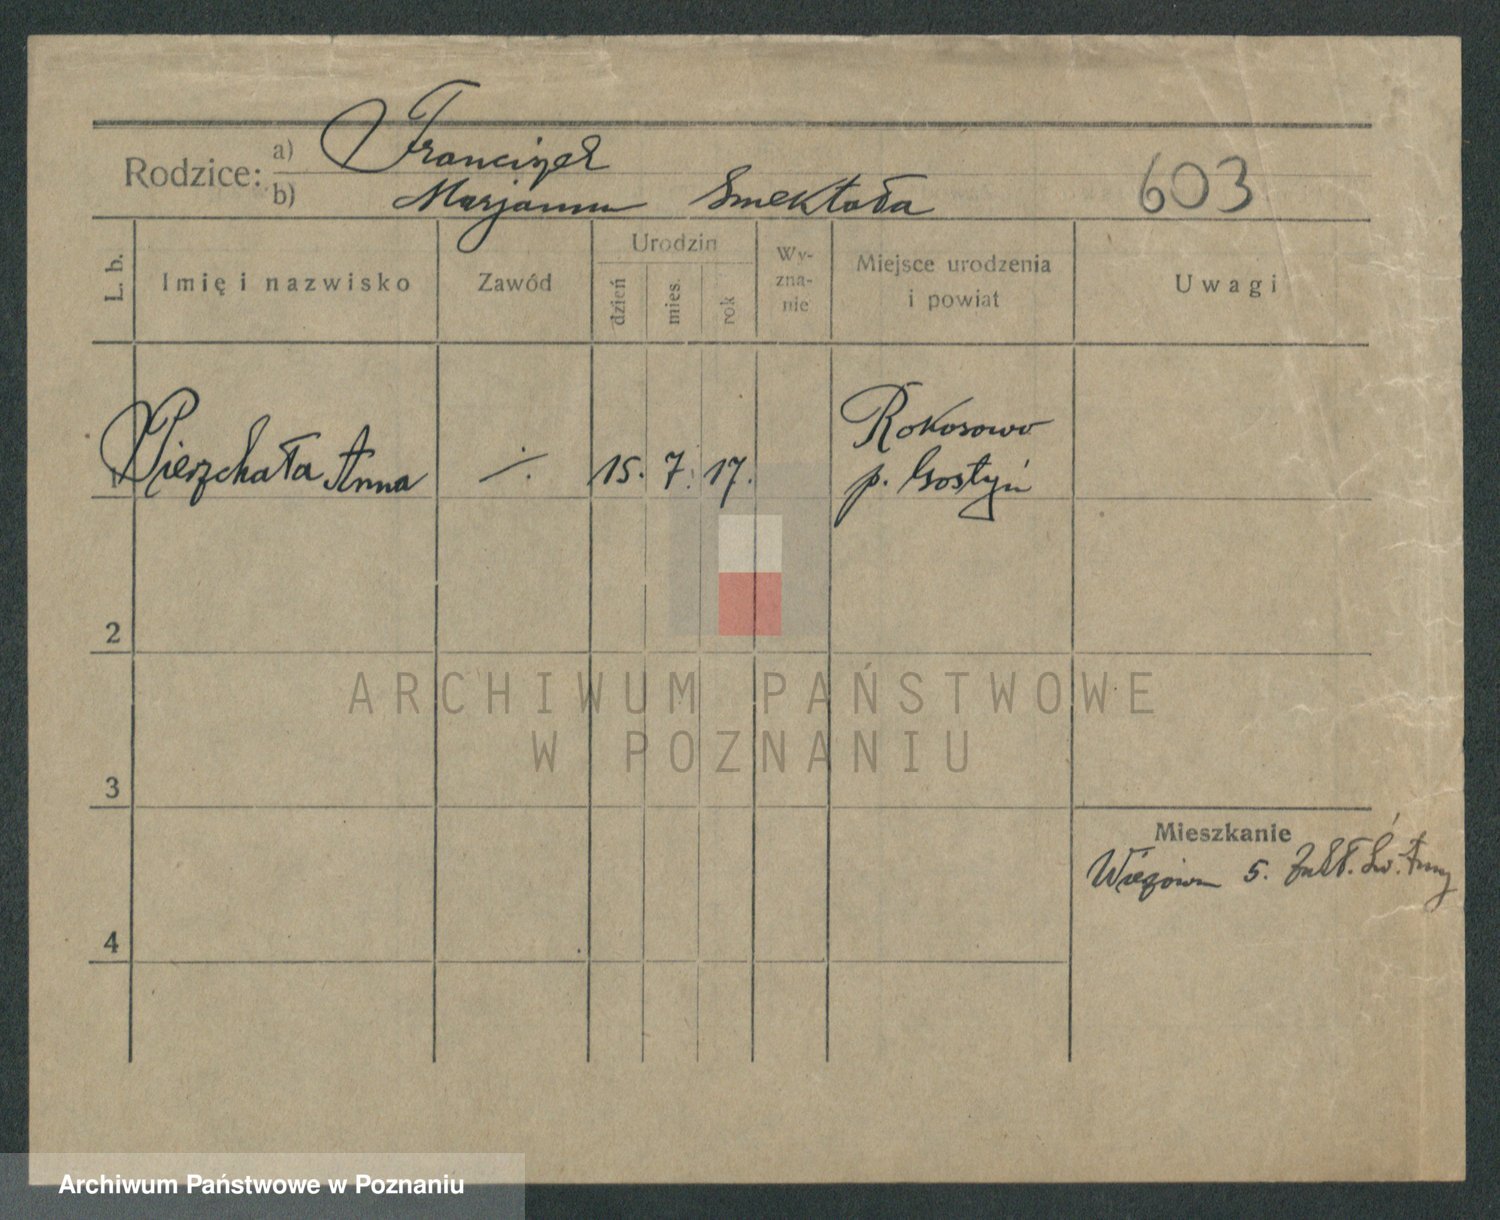 Rodzice:
a) Franciszek
b) Marjanna Smektała
603
L. b.
Imię i nazwisko
Zawód
Urodzin
dzień
mies.
rok
Wy-
zna-
nie
Miejsce urodzenia
i powiat
Uwagi
Pierzchała Anna
·/.
15. 7. 17.
Rokosowo
p. Gostyń
2
3
4
Mieszkanie
5. Zakł. Św. Anny
ARCHIWUM PAŃSTWOWE
W POZNANIU
Archiwum Państwowe w Poznaniu